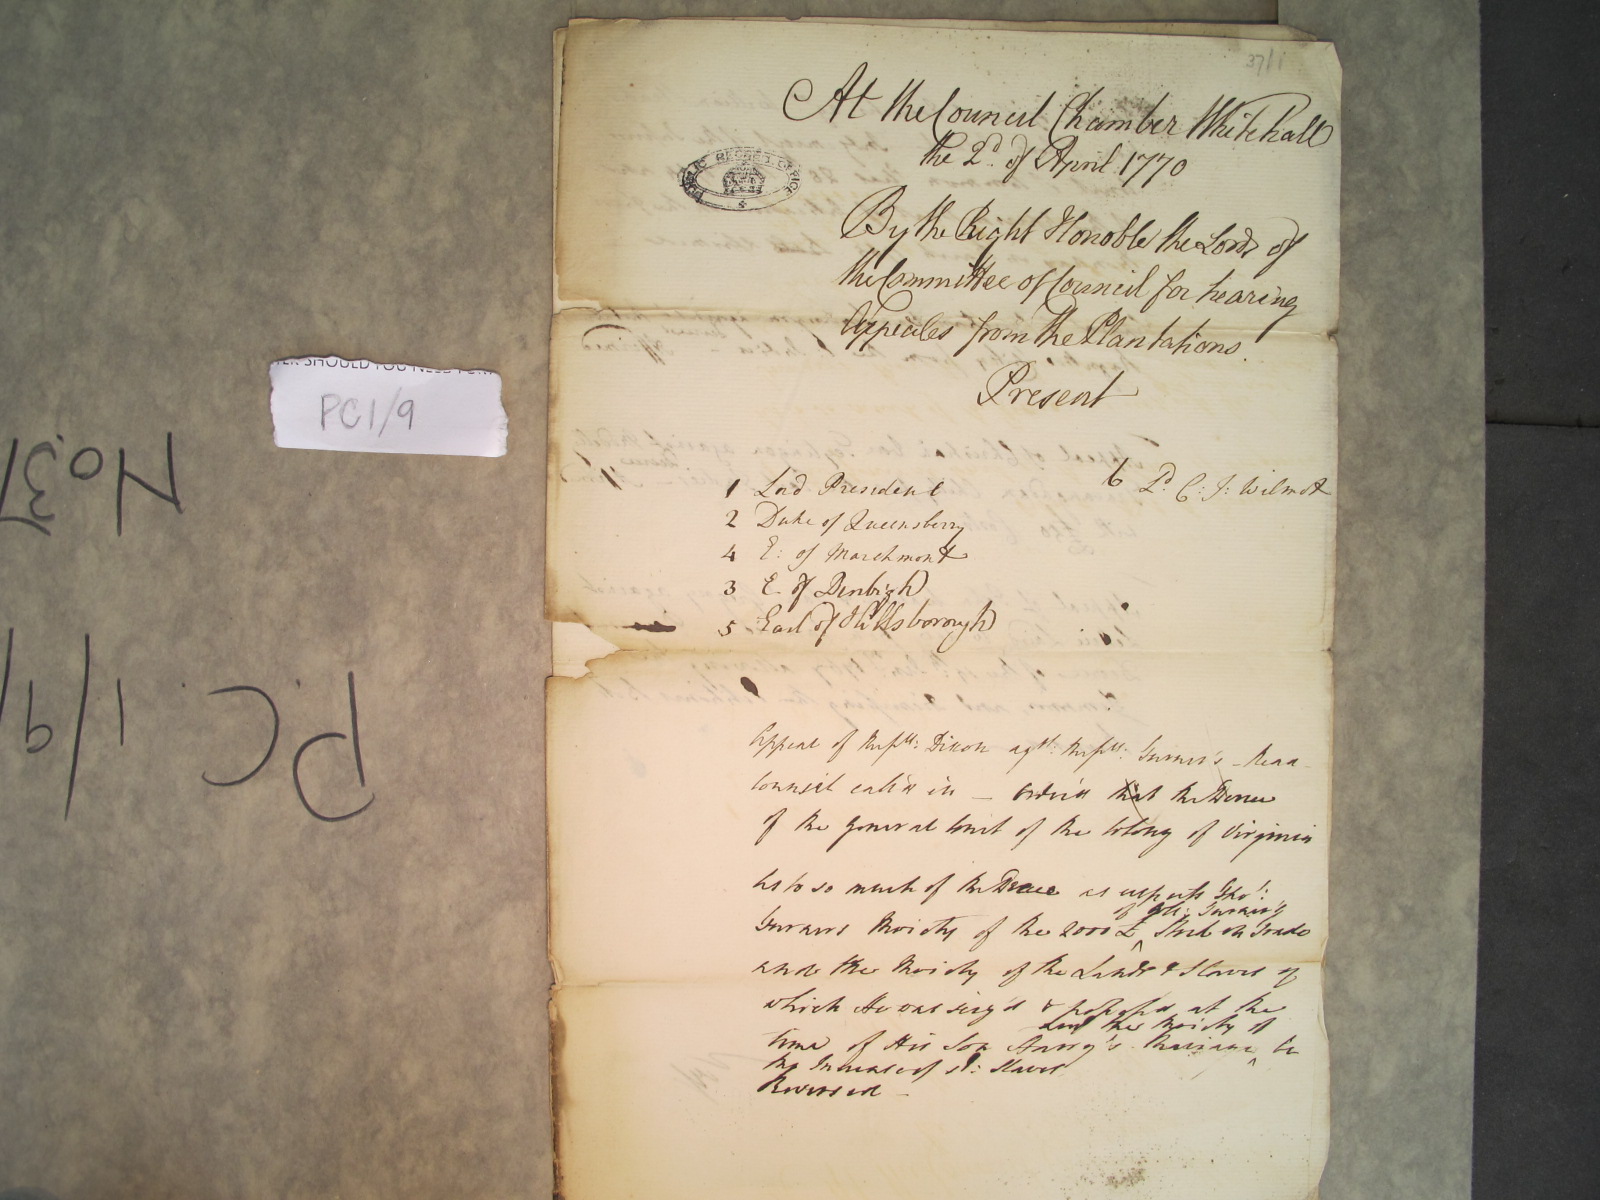 37/1
At the Council Chamber Whitehall
the 2d. of April 1770
PUBLIC RECORD OFFICE
By the Right Honoble the Lords of
the Committee of Council for hearing
Appeales from the Plantations.
Present
1 Lord President
6 Ld. C: J: Wilmot
2 Duke of Queensberry
4 E: of Marchmont
3 E. of Denbigh
5 Earl of Hillsborough
Appeal of Dixon agst: Turner's - Read
Council call'd in - order'd that the Decree
of the General Court of the Colony of Virginia
as to so much of the Decree as respects Tho:
of Turner's
Turners Moiety of the 2000 £ ^ Stock in Trade
and the Moiety of the Lands & Slaves of
which He was seiz'd & possess'd at the
and the Moiety of
time of His Son Marriage ^ be
the Increase of sd: Slaves
Reversed -
PC1/9
No37
PC 1/9